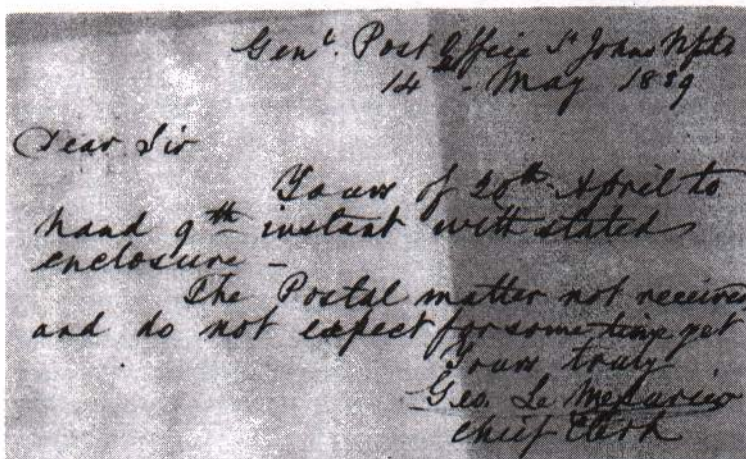 Genl. Post Office St Johns Nfld
14th May 1889
Dear Sir
Yours of 20th April to
hand 9th instant with stated
enclosure -
The Postal matter not received
and do not expect for some time yet
Yours truly
Geo. Le Messurier
Chief Clerk